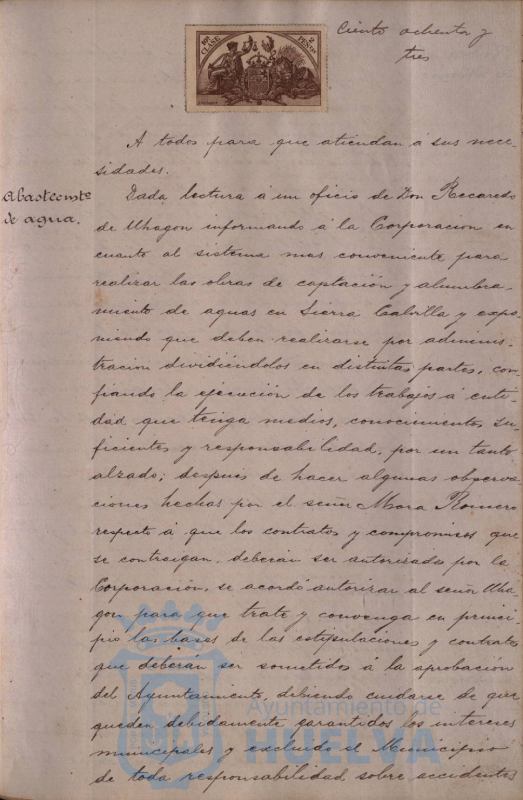 10ª CLASE
2 PESETAS
Ciento ochenta y
tres
A todos para que atiendan á sus nece-
sidades.
Abastecmto
de agua.
Dada lectura á un oficio de Don Recaredo
de Uhagon informando á la Corporacion en
cuanto al sistema mas conveniente para
realizar las obras de captación y alumbra-
miento de aguas en Sierra Cabrilla y expo-
niendo que deben realizarse por adminis-
tracion dividiéndolos en distintas partes, con-
fiando la ejecución de los trabajos á enti-
dad que tenga medios, conocimientos su-
ficientes y responsabilidad, por un tanto
alzado; despues de hacer algunas observa-
ciones hechas por el señor Mora Romero
respecto á que los contratos y compromisos que
se contraigan, deberán ser autorizados por la
Corporación, se acordó autorizar al señor Uha-
gon para que trate y convenga en princi-
pio las bases de las estipulaciones y contratos
que deberán ser sometidos á la aprobación
del Ayuntamiento, debiendo cuidarse de que
queden debidamente garantidos los intereses
municipales y excluido el Municipio
de toda responsabilidad sobre accidentes
Ayuntamiento de
HUELVA